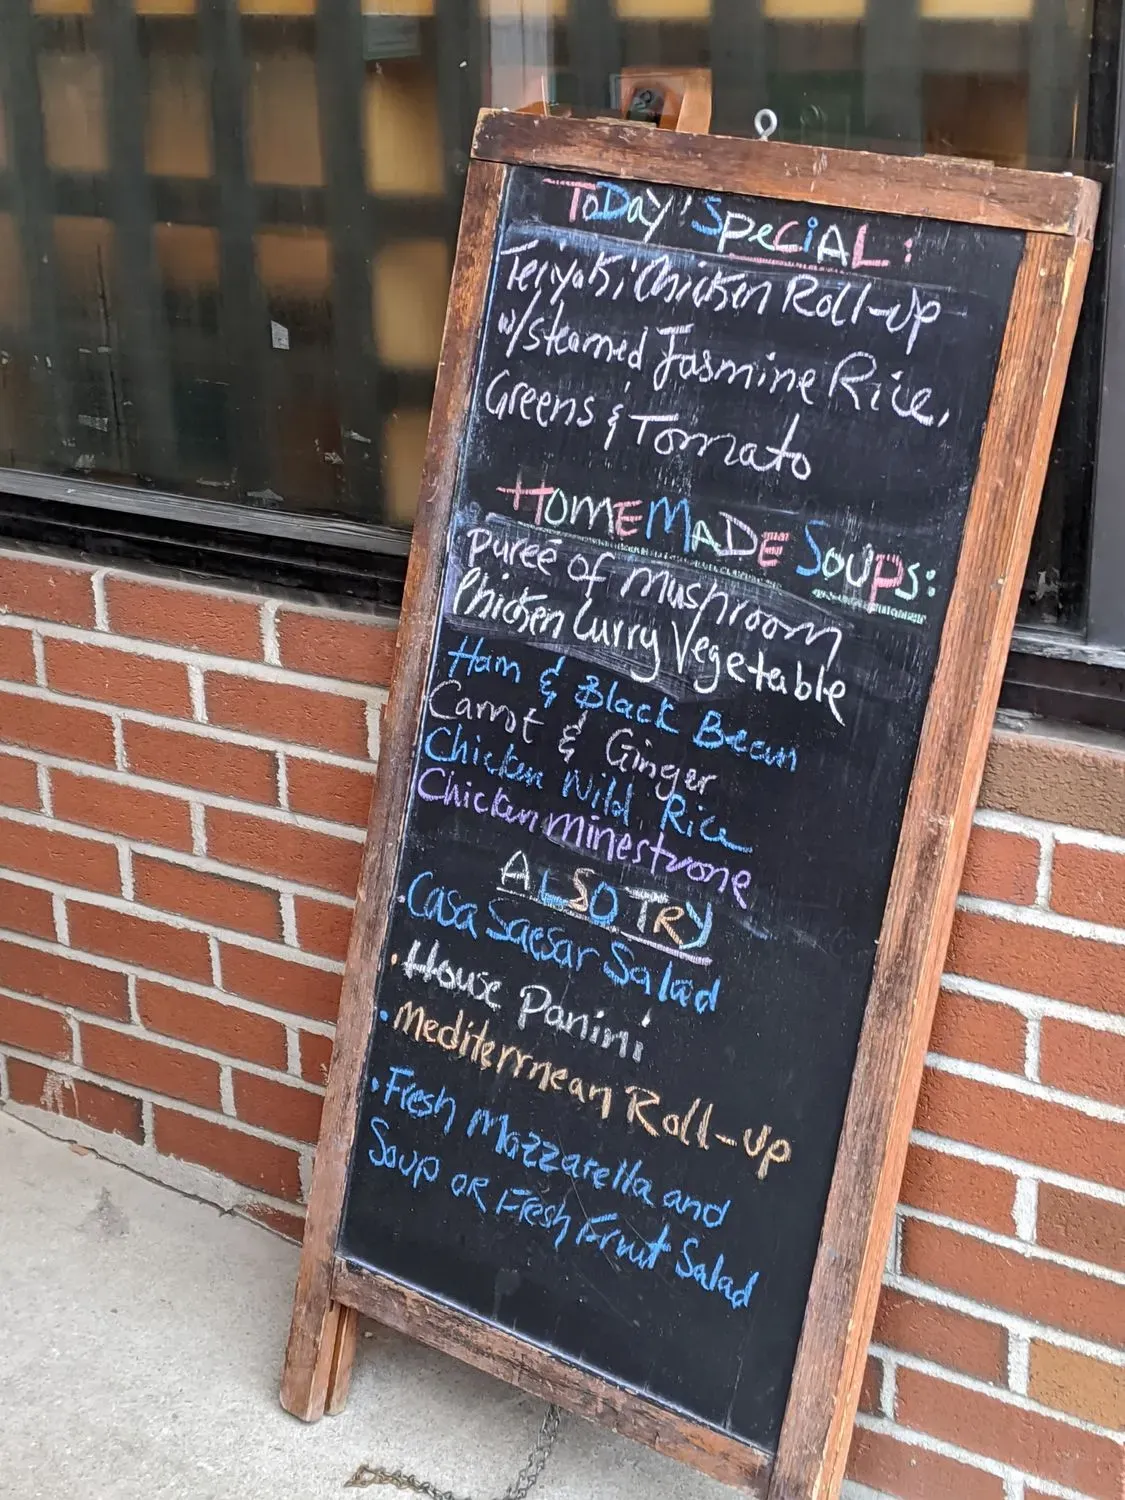 ToDay'SpeCiAL:
Teriyaki Chicken Roll-up
w/steamed Jasmine Rice,
Greens & Tomato
HOMEMADE SOUPS:
Pureé of Mushroom
Chicken Curry Vegetable
Ham & Black Bean
Carrot & Ginger
Chicken Wild Rice
Chicken Minestrone
ALSO TRY
. Casa Saesar Salad
. House Panini
. Mediterrnean Roll-up
. Fresh Mozzarella and
Soup OR Fresh Fruit Salad